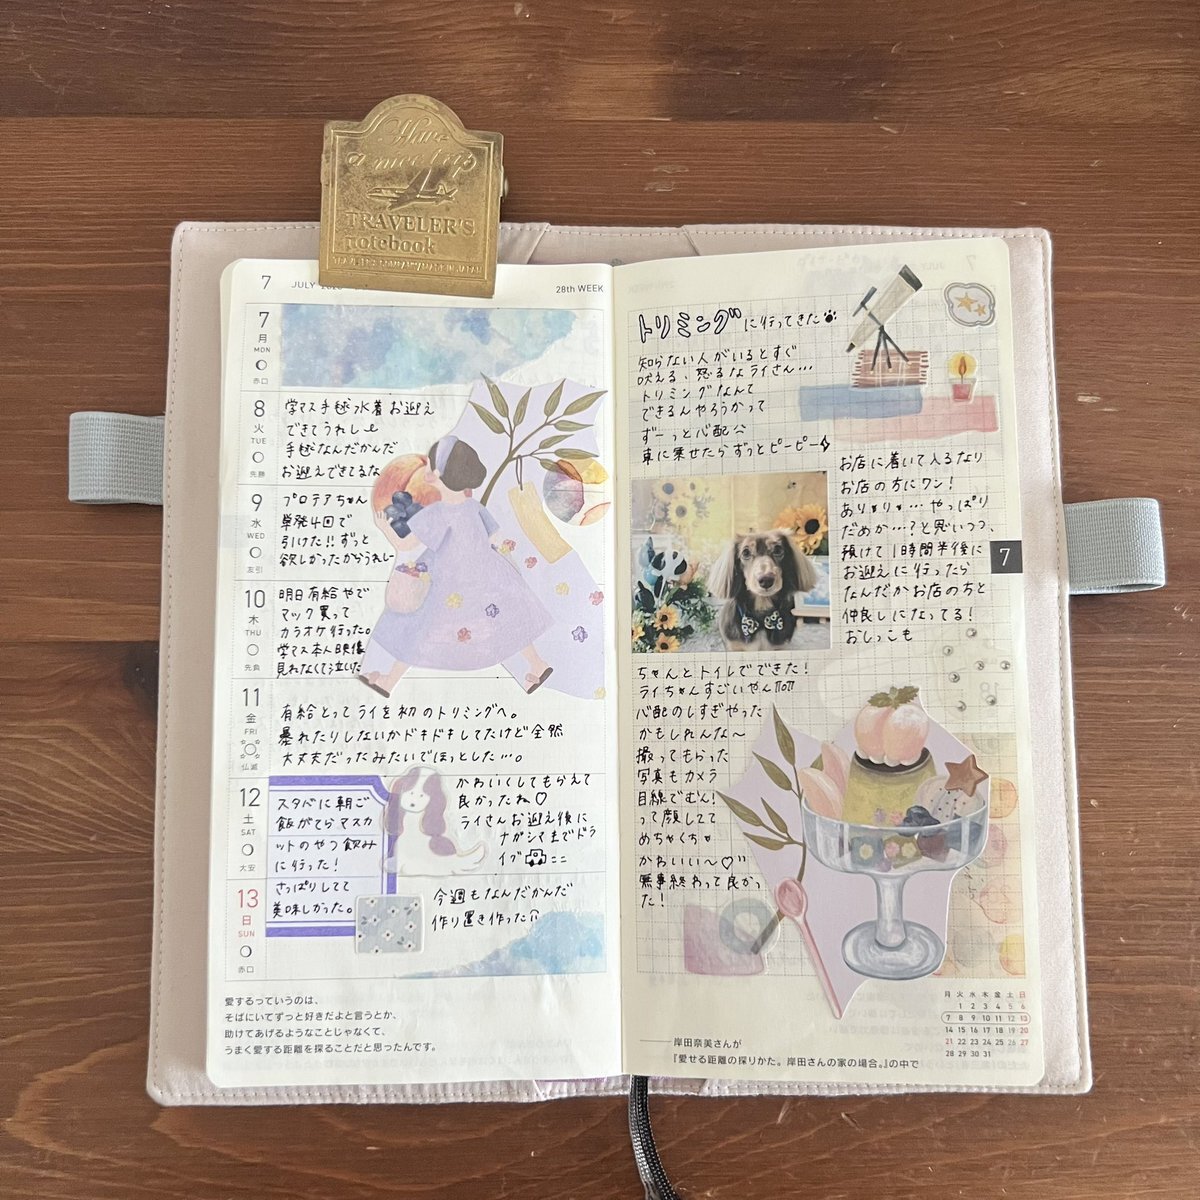 Have
a nice trip
TRAVELER'S
notebook
TRAVELER'S COMPANY MADE IN JAPAN
7 JULY
28th WEEK
7
月
MON
赤口
8
火
TUE
先勝
学マス手毬水着お迎え
できてうれしい
手毬なんだかんだ
お迎えできてるな
9
水
WED
友引
プロテアちゃん
単発4回で
引けた!!ずっと
欲しかったからうれしい
10
木
THU
先負
明日有給やで
マック買って
カラオケ行った。
学マス本人映像
見れなくて泣いた
11
金
FRI
仏滅
有給とってライを初のトリミングへ。
暴れたりしないかドキドキしてたけど全然
大丈夫だったみたいでほっとした…。
12
土
SAT
大安
スタバに朝ご
飯がてらマスカ
ットのやつ飲み
に行った!
さっぱりしてて
美味しかった。
かわいくしてもらえて
良かったね♡
ライさんお迎え後に
ナガシマまでドラ
イブ
13
日
SUN
赤口
今週もなんだかんだ
作り置き作った
愛するっていうのは、
そばにいてずっと好きだよと言うとか、
助けてあげるようなことじゃなくて、
うまく愛する距離を探ることだと思ったんです。
トリミングに行ってきた
知らない人がいるとすぐ
吠える、怒るなライさん…
トリミングなんて
できるんやろうかって
ずーっと心配
車に乗せたらずっとピーピー
お店に着いて入るなり
お店の方にワン!
ありゃりゃ…やっぱり
だめか…?と思いつつ、
預けて1時間半後に
お迎えに行ったら
なんだかお店の方と
仲良しになってる!
おしっこも
7
ちゃんとトイレでできた!
ライちゃんすごいやん
心配のしすぎやった
かもしれんな〜
撮ってもらった
写真もカメラ
目線でむん!
って顔してて
めちゃくちゃ
かわいい〜♡
無事終わって良かっ
た!
月 火 水 木 金 土 日
1 2 3 4 5 6
7 8 9 10 11 12 13
14 15 16 17 18 19 20
21 22 23 24 25 26 27
28 29 30 31
——岸田奈美さんが
『愛せる距離の探りかた。岸田さんの家の場合。』の中で